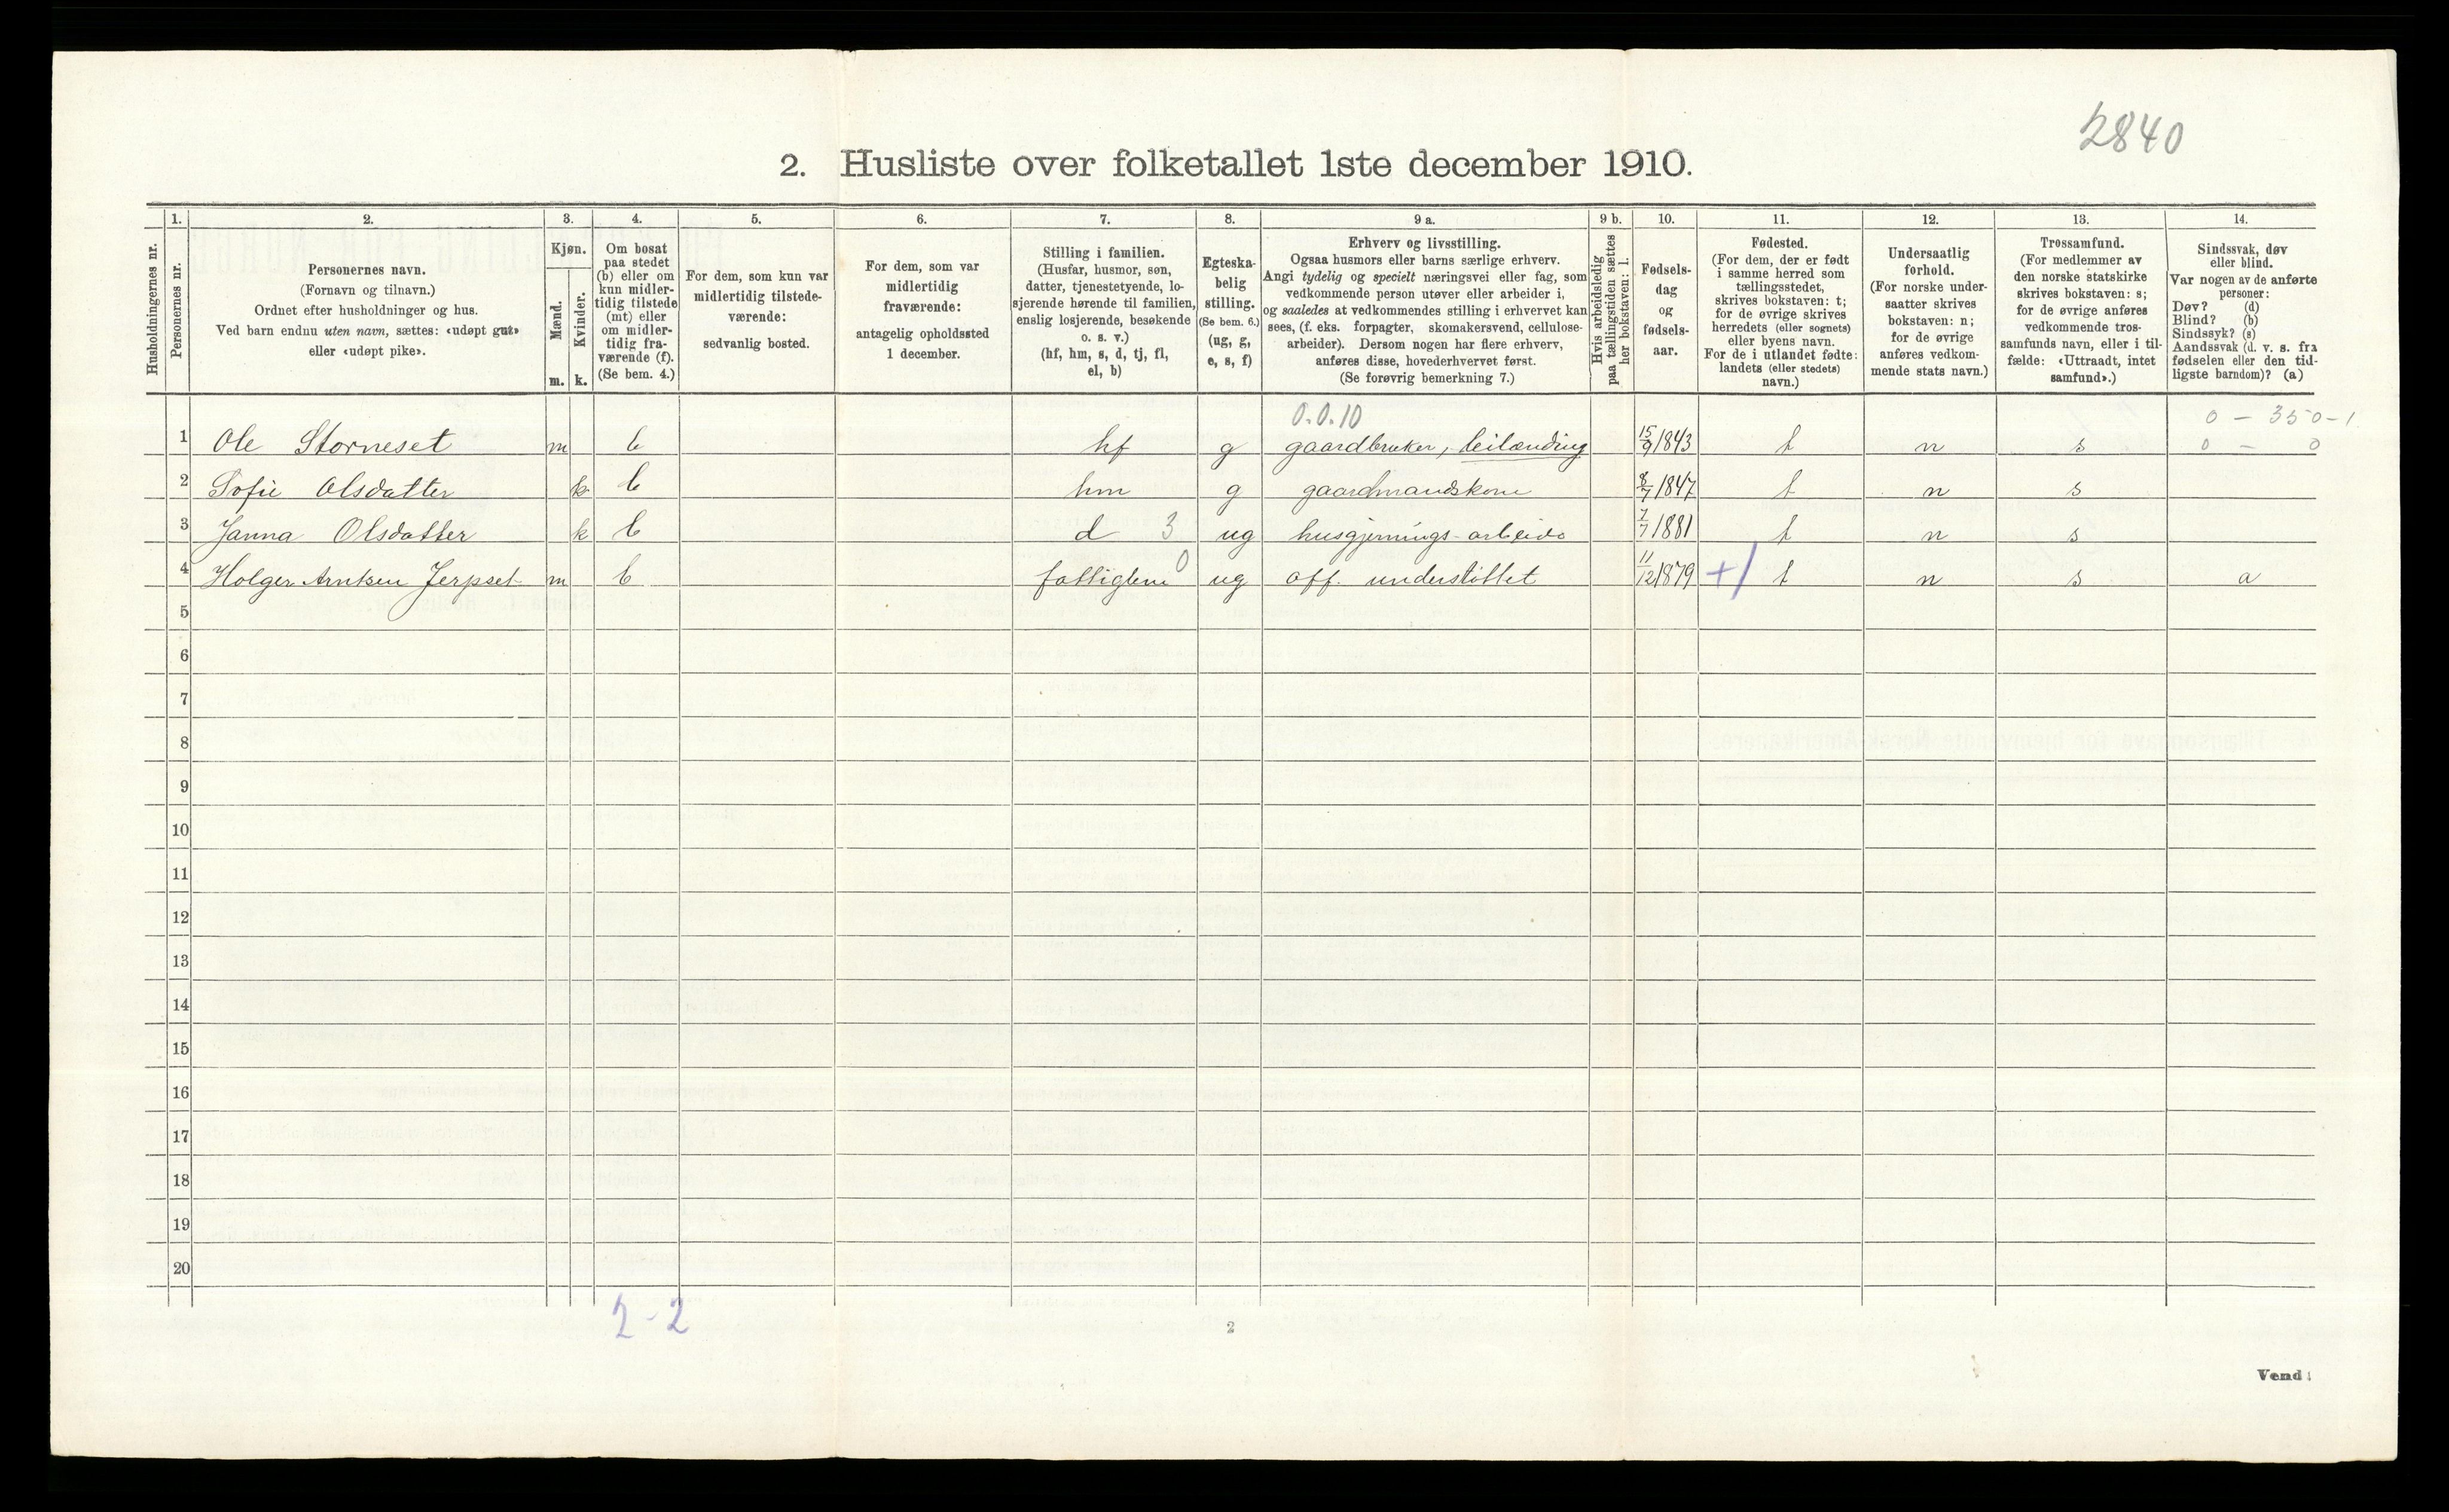 2840
2. Husliste over folketallet 1ste december 1910.
Husholdningernes nr.
1.
Personernes nr.
2.
Personernes navn.
(Fornavn og tilnavn.)
Ordnet efter husholdninger og hus.
Ved barn endnu uten navn, sættes: «udøpt gut»
eller «udøpt pike».
3.
Kjøn.
Mænd.
m.
Kvinder.
k.
4.
Om bosat
paa stedet
(b) eller om
kun midler-
tidig tilstede
(mt) eller
om midler-
tidig fra-
værende (f).
(Se bem. 4.)
5.
For dem, som kun var
midlertidig tilstede-
værende:
sedvanlig bosted.
6.
For dem, som var
midlertidig
fraværende:
antagelig opholdssted
1 december.
7.
Stilling i familien.
(Husfar, husmor, søn,
datter, tjenestetyende, lo-
sjerende hørende til familien,
enslig losjerende, besøkende
o. s. v.)
(hf, hm, s, d, tj, fl,
el, b)
8.
Egteska-
belig
stilling.
(Se bem. 6.)
(ug, g,
e, s, f)
9 a.
Erhverv og livsstilling.
Ogsaa husmors eller barns særlige erhverv.
Angi tydelig og specielt næringsvei eller fag, som
vedkommende person utøver eller arbeider i,
og saaledes at vedkommendes stilling i erhvervet kan
sees, (f. eks. forpagter, skomakersvend, cellulose-
arbeider). Dersom nogen har flere erhverv,
anføres disse, hovederhvervet først.
(Se forøvrig bemerkning 7.)
9 b.
Hvis arbeidsledig
paa tællingstiden sættes
her bokstaven: l.
10.
Fødsels-
dag
og
fødsels-
aar.
11.
Fødested.
(For dem, der er født
i samme herred som
tællingsstedet,
skrives bokstaven: t;
for de øvrige skrives
herredets (eller sognets)
eller byens navn.
For de i utlandet fødte:
landets (eller stedets)
navn.)
12.
Undersaatlig
forhold.
(For norske under-
saatter skrives
bokstaven: n;
for de øvrige
anføres vedkom-
mende stats navn.)
13.
Trossamfund.
(For medlemmer av
den norske statskirke
skrives bokstaven: s;
for de øvrige anføres
vedkommende tros-
samfunds navn, eller i til-
fælde: «Uttraadt, intet
samfund».)
14.
Sindssvak, døv
eller blind.
Var nogen av de anførte
personer:
Døv? (d)
Blind? (b)
Sindssyk? (s)
Aandssvak (d. v. s. fra
fødselen eller den tid-
ligste barndom)? (a)
0.0.10
0 - 350-1
1 Ole Storneset m b hf g gaardbruker, leilænding 15/9 1843 t n s 0 - 0
2 Sofie Olsdatter k b hm g gaardmandskone 8/7 1847 t n s
3 Janna Olsdatter k b d 3 ug husgjernings-arbeide 7/7 1881 t n s
4 Holger Arntsen Jerpset m b fattiglem 0 ug off. understøttet 11/12 1879 + / t n s a
5
6
7
8
9
10
11
12
13
14
15
16
17
18
19
20
2-2
2
Vend!